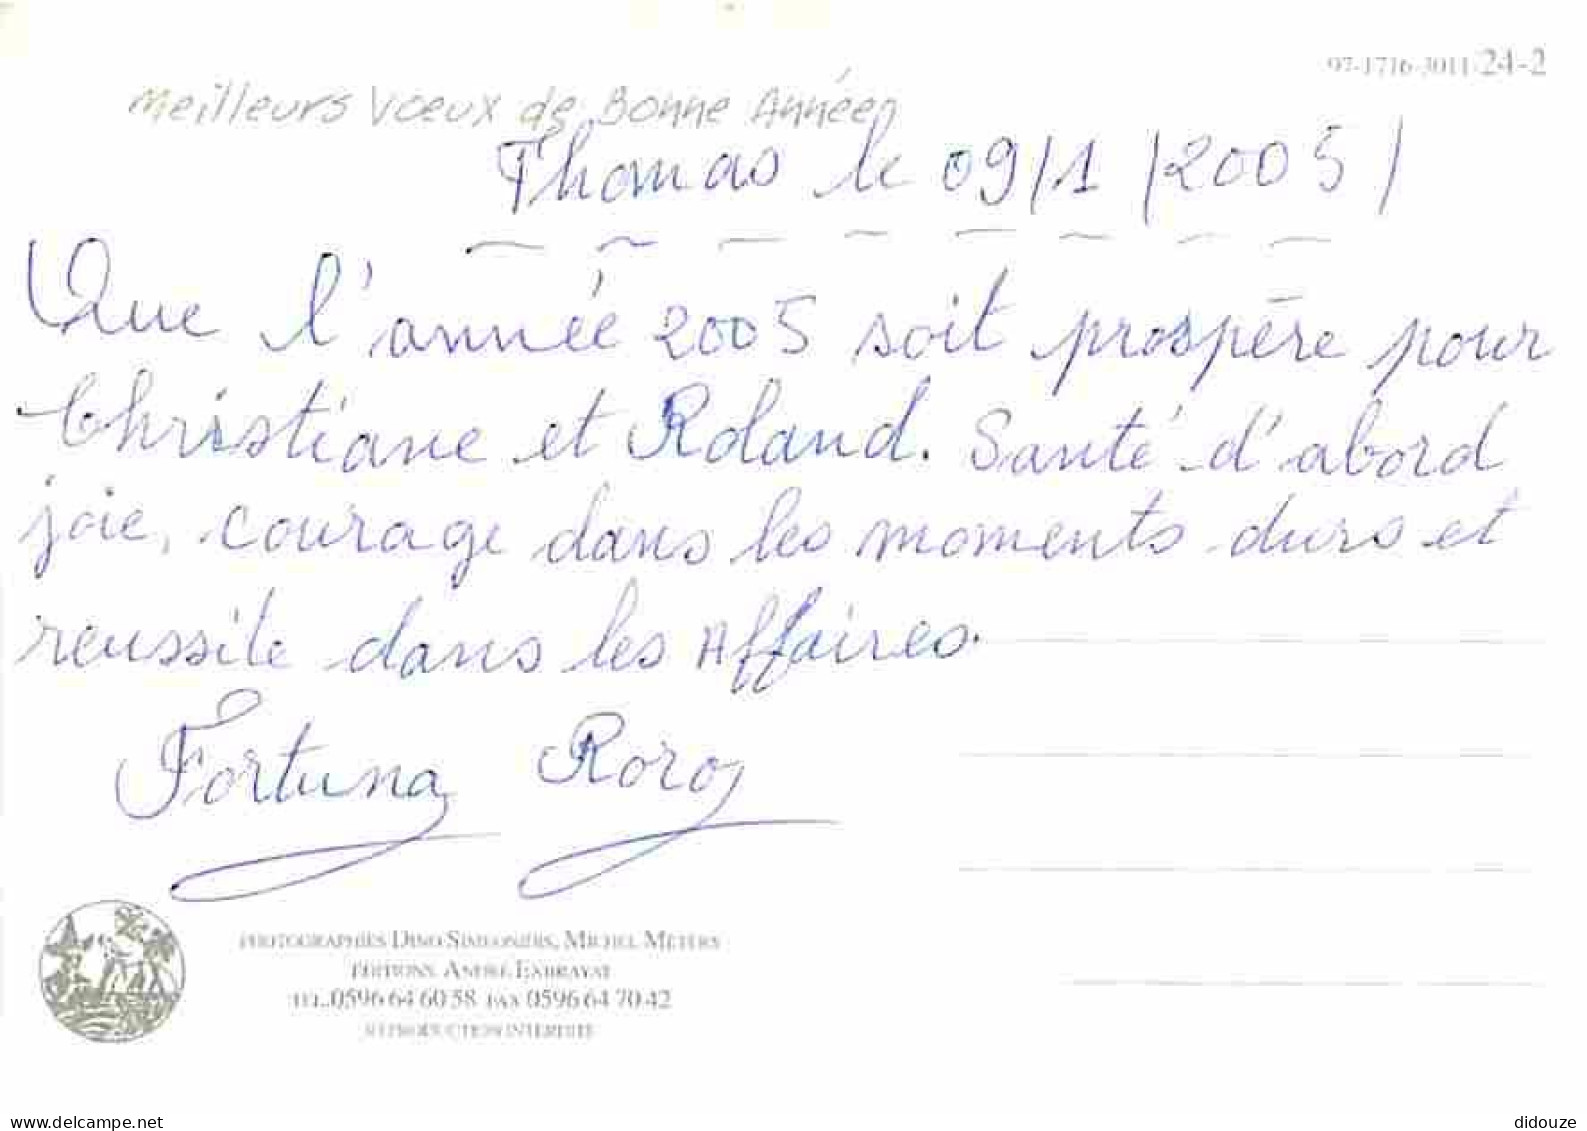 97-1716-3011-24-2
Meilleurs Vœux de Bonne Année
Thomas le 09/1/2005/
Que l'année 2005 soit prospère pour
Christiane et Roland. Santé d'abord
joie, courage dans les moments durs et
reussite dans les Affaires.
Fortuna Roro
PHOTOGRAPHIES DINO SIMEONIDIS, MICHEL METERY
EDITIONS ANDRÉ EXBRAYAT
TEL. 0596 64 60 58 FAX 0596 64 70 42
REPRODUCTION INTERDITE
www.delcampe.net
didouze